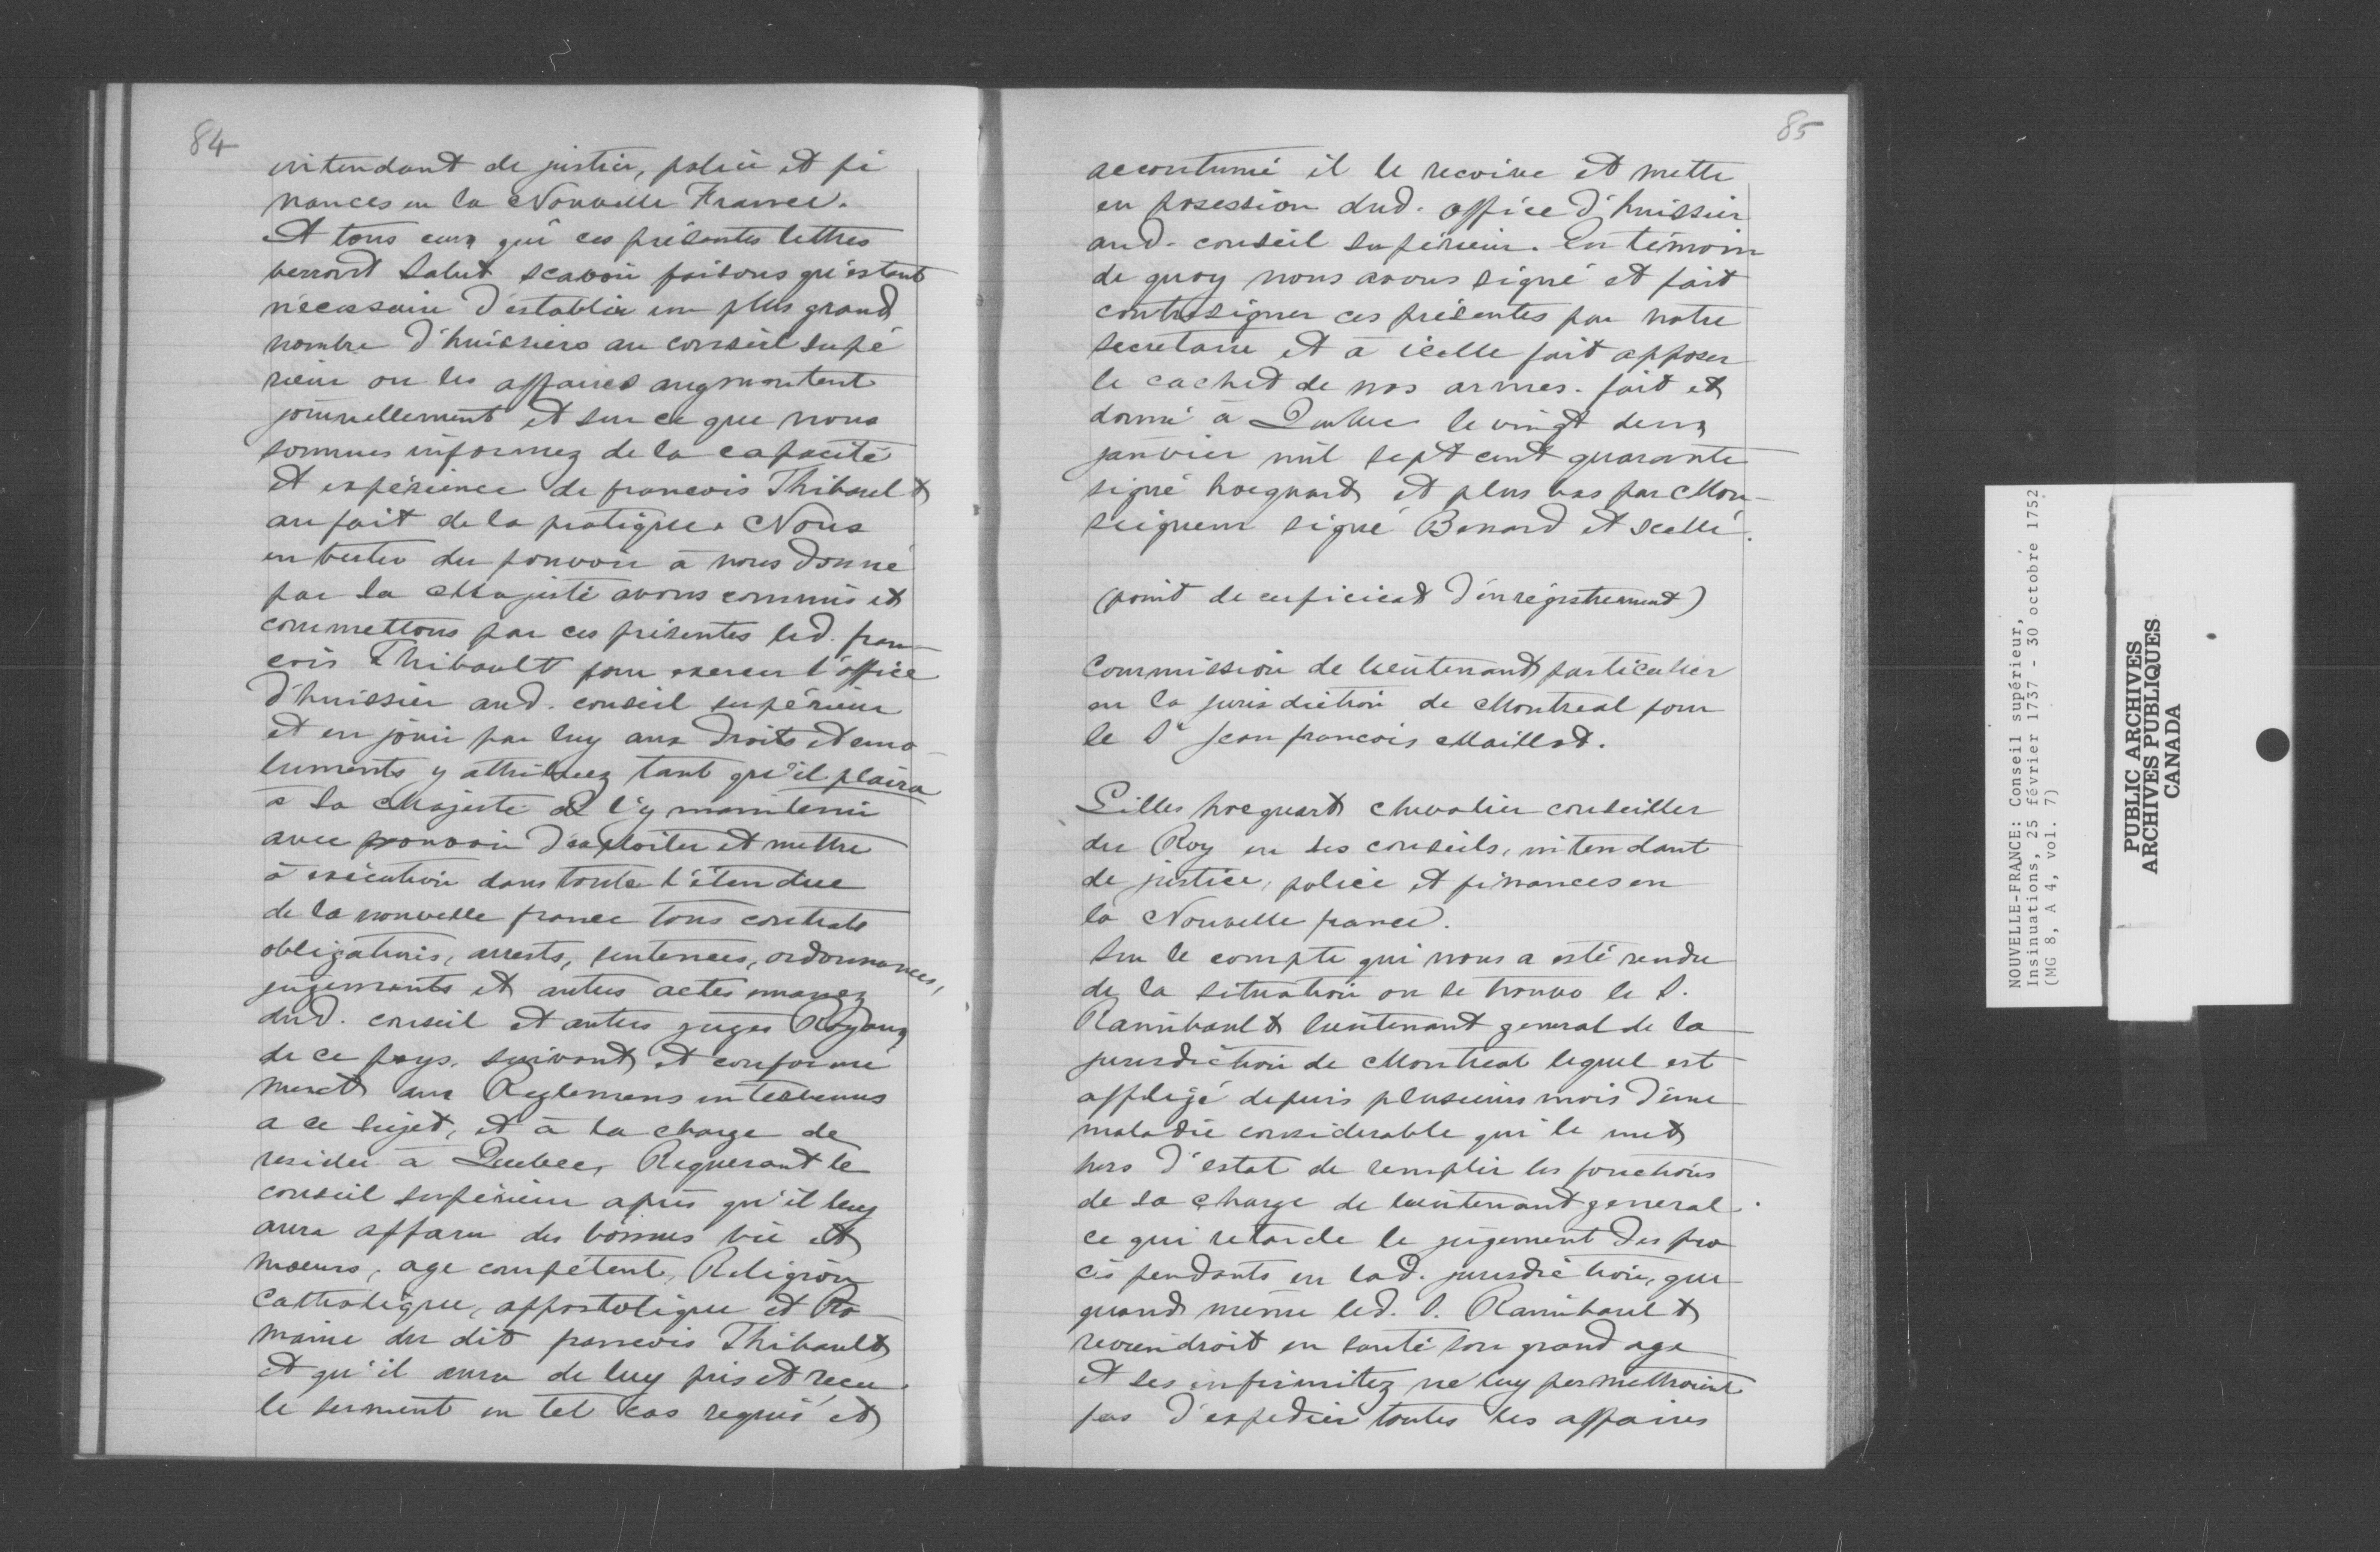 84
intendant de justice, police et fi
nances en la Nouvelle France.
A tous ceux qui ces présentes lettres
verront Salut scavoir faisons qu'estant
nécessaire d'establir un plus grand
nombre d'huissiers au conseil supé
rieur ou les affaires augmentent
journellement et sur ce que nous
sommes informez de la capacité
et expérience de francois Thibault
au fait de la pratique. Nous
en vertu du pouvoir à nous donné
par sa Majesté avons commis et
commettons par ces présentes led. fran
cois Thibault pour exercer l'office
d'huissier aud. conseil supérieur
et en jouir par luy aux droits et emo
luments y attribuez tant qu'il plaira
a sa Majeste de l'y maintenir
avec pouvoir d'exploiter et mettre
à exécution dans toute l'étendue
de la nouvelle france tous contrats
obligations, arrests, sentences, ordonnances,
jugements et autres actes emanez
dud. conseil et autres juges Royaux
de ce pays, suivant et conformé
ment aux Reglemens intervenus
a ce sujet, et à la charge de
resider à Quebec, Requerant le
conseil supérieur après qu'il luy
aura apparu des bonnes vie et
moeurs, age compétent, Religion
Catholique, appostolique et Ro
maine du dit francois Thibault
et qu'il aura de luy pris et recu
le serment en tel cas requis et
85
accoutumé il le recoive et mette
en posession dud. office d'huissier
aud. conseil supérieur. En témoin
de quoy nous avons signé et fait
contresigner ces présentes par notre
secretaire et à icelle fait apposer
le cachet de nos armes. fait et
donné à Quebec le vingt deux
janvier mil sept cent quarante
signé hocquart et plus bas par Mon-
seigneur signé Benard et scellé.
(point de cerficicat d'enregistrement)
Commission de lieutenant particulier
en la jurisdiction de Montreal pour
le Sr Jean francois Maillot.
Gilles hocquart chevalier conseiller
du Roy en ses conseils, intendant
de justice, police et finances en
la Nouvelle france.
Sur le compte qui nous a esté rendu
de la situation ou se trouve le S.
Raimbault lieutenant general de la
jurisdiction de Montreal lequel est
affligé depuis plusieurs mois d'une
maladie considerable qui le met
hors d'estat de remplir les fonctions
de sa charge de lieutenant general.
ce qui retarde le jugement des pro
cès pendants en lad. jurisdiction, que
quand meme led. S. Raimbault
reviendroit en santé son grand age
et ses infirmitez ne luy permettroient
pas d'expedier toutes les affaires
NOUVELLE-FRANCE: Conseil supérieur,
Insinuations, 25 février 1737 - 30 octobre 1752
(MG 8, A 4, vol. 7)
PUBLIC ARCHIVES
ARCHIVES PUBLIQUES
CANADA